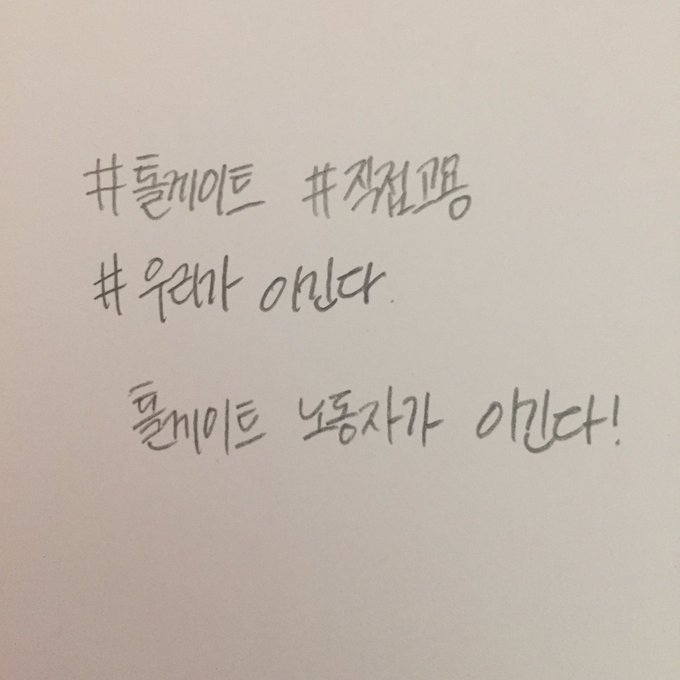 #톨게이트 #직접고용
#우리가 이긴다.
톨게이트 노동자가 이긴다!